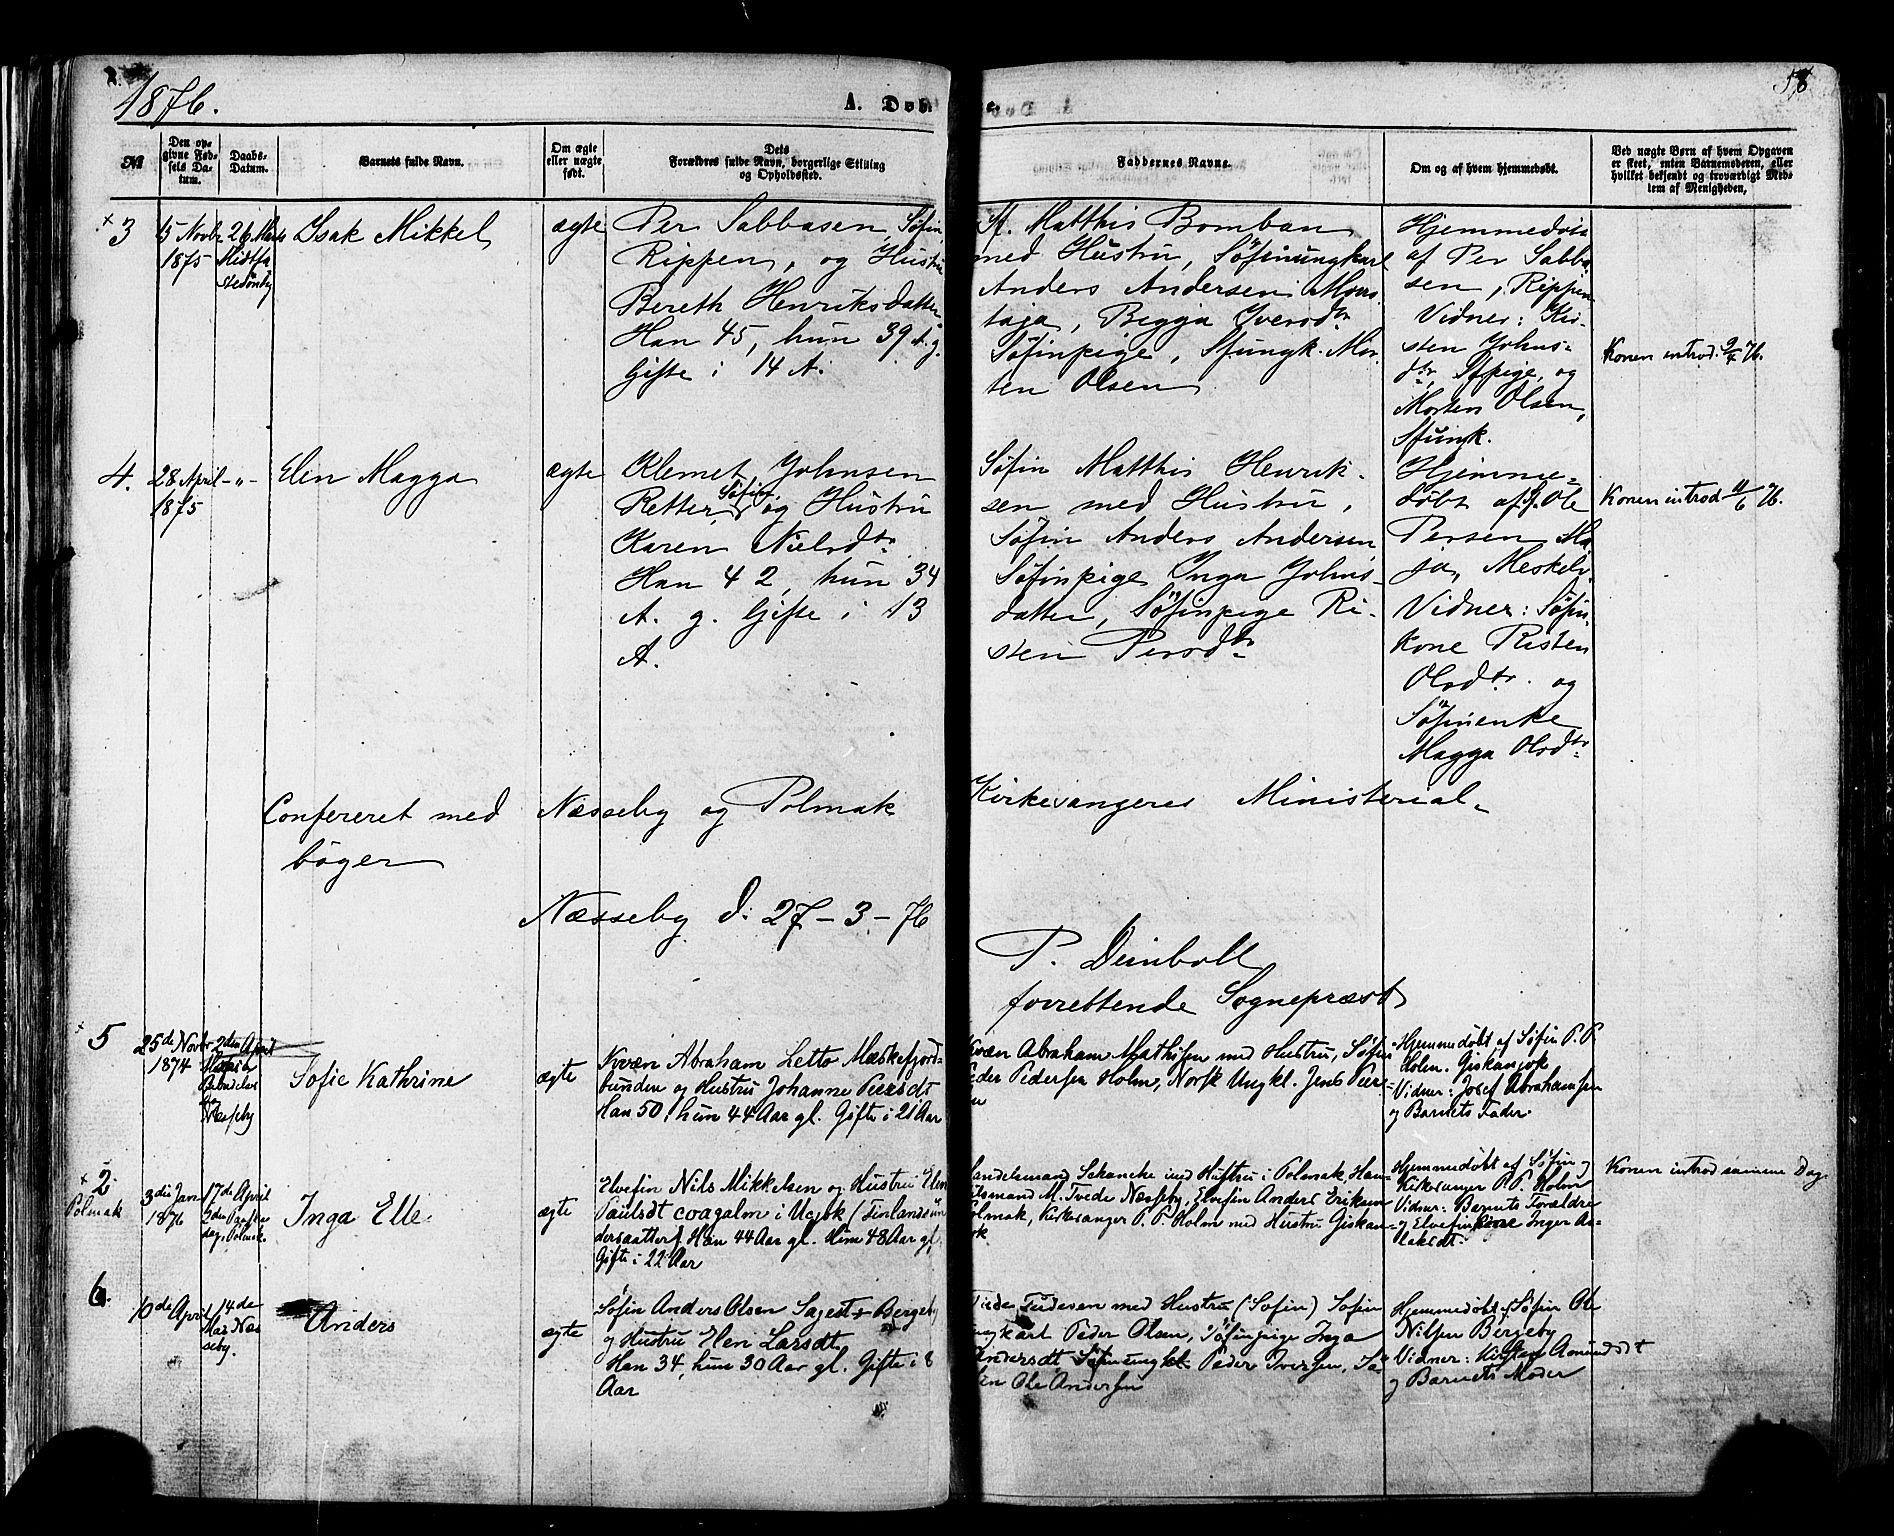 1876.
A. Døb
58
№
Den op-
givne Fød-
sels Da-
tum.
Daabs-
Datum.
Barnets fulde Navn.
Om ægte
eller uægte
født.
Dets
Forældres fulde Navn, borgerlige Stilling
og Opholdssted.
Faddernes Navne.
Om og af hvem hjemmedøbt.
Ved uægte Børn af hvem Opgaven
er skeet, enten Barnemoderen, eller
hvilket bekjendt og troværdigt Med-
lem af Menigheden.
3
15 Novbr
1875
26 Marts
Midtfa
stesøndg
Isak Mikkel
ægte
Per Sabbasen, Søfin,
Rippen, og Hustru
Bereth Henriksdatter
Han 45, hun 39 A. g.
Gifte i 14 A.
Sf. Matthis Bomban
med Hustru, Søfinungkarl
Anders Andersen
taja, Begga Iversdtr
Søfinpige, Sfungk. Mor-
ten Olsen
Hjemmedøbt
af Per Sabba
sen, Rippen
Vidner: Kir-
sten Johns-
dtr, Sfpige, og
Morten Olsen,
Sfungk.
Konen introd. 9/4 76.
4.
28 April
1875
-"-
Elen Magga
ægte
Klemet Johnsen
Retter, Søfin, og Hustru
Karen Nielsdtr
Han 42, hun 34
A. g. Gifte i 13
A.
Søfin Matthis Henrik-
sen med Hustru,
Søfin Anders Andersen
Søfinpige Inga Johns-
datter, Søfinpige Ri-
sten Persdtr
Hjemme-
døbt af Sf. Ole
Persen
Meskelv.
Vidner: Søfin
kone Risten
Olsdtr. og
Søfinenke
Magga Olsdtr
Konen introd 11/6 76.
Confereret med Næsseby og Polmak Kirkesangeres Ministerial-
bøger
Næsseby d: 27-3-76
P. Deinboll
forrettende Sognepræst
5
25de Novbr
1874
2den April
Næsseby
Sofie Kathrine
ægte
Kvæn Abraham Letto Mæskefjord-
bunden og Hustru Johanne Piersdt
Han 50, hun 44 Aar gl. Gifte i 21 Aar
Kvæn Abraham Mathisen med Hustru, Søfin
Peder Pedersen Holm, Norsk Ungkl. Jens
Hjemmedøbt af Søfin P. P.
Holm. Giskanjok
Vidner: Josef Abrahamsen
og Barnets Fader.
2
Polmak
3die Jan
1876
17de April
2den Paaske
dag. Polmak.
Inga Elle
ægte
Elvefin Nils Mikkelsen og Hustru Elen
Paulsdt coagalm i Ucjok (Finlands un
dersaatter) Han 44 Aar gl. Hun 48 Aar gl.
Gifte i 22 Aar
Handelsmand Schancke med Hustru i Polmak, Han-
delsmand M. Tvede Næsseby, Elvefin Anders Eriksen
Polmak, Kirkesanger P. P. Holm med Hustru Giskan-
jok
Hjemmedøbt af Søfin og
Kirkesanger P. P. Holm
Vidner: Barnets Forældre
og Elvefinkone Inger As-
laksdt.
Konen introd samme Dag
6.
10de April
14de
Mai Næs
seby.
Anders
ægte
Søfin Anders Olsen Bergeby
og Hustru Elen Larsdt
Han 34, hun 30 Aar gl. Gifte i 8
Aar
med Hustru (Søfin) Søfin
ungkarl Peder Olsen, Søfinpige Inga
Andersdt Søfinungkl. Peder Iversen, Sø-
fin Ole Andersen
Hjemmedøbt af Søfin Ole
Nilsen Bergeby
Vidner: Kirsten Amundsdt
og Barnets Moder